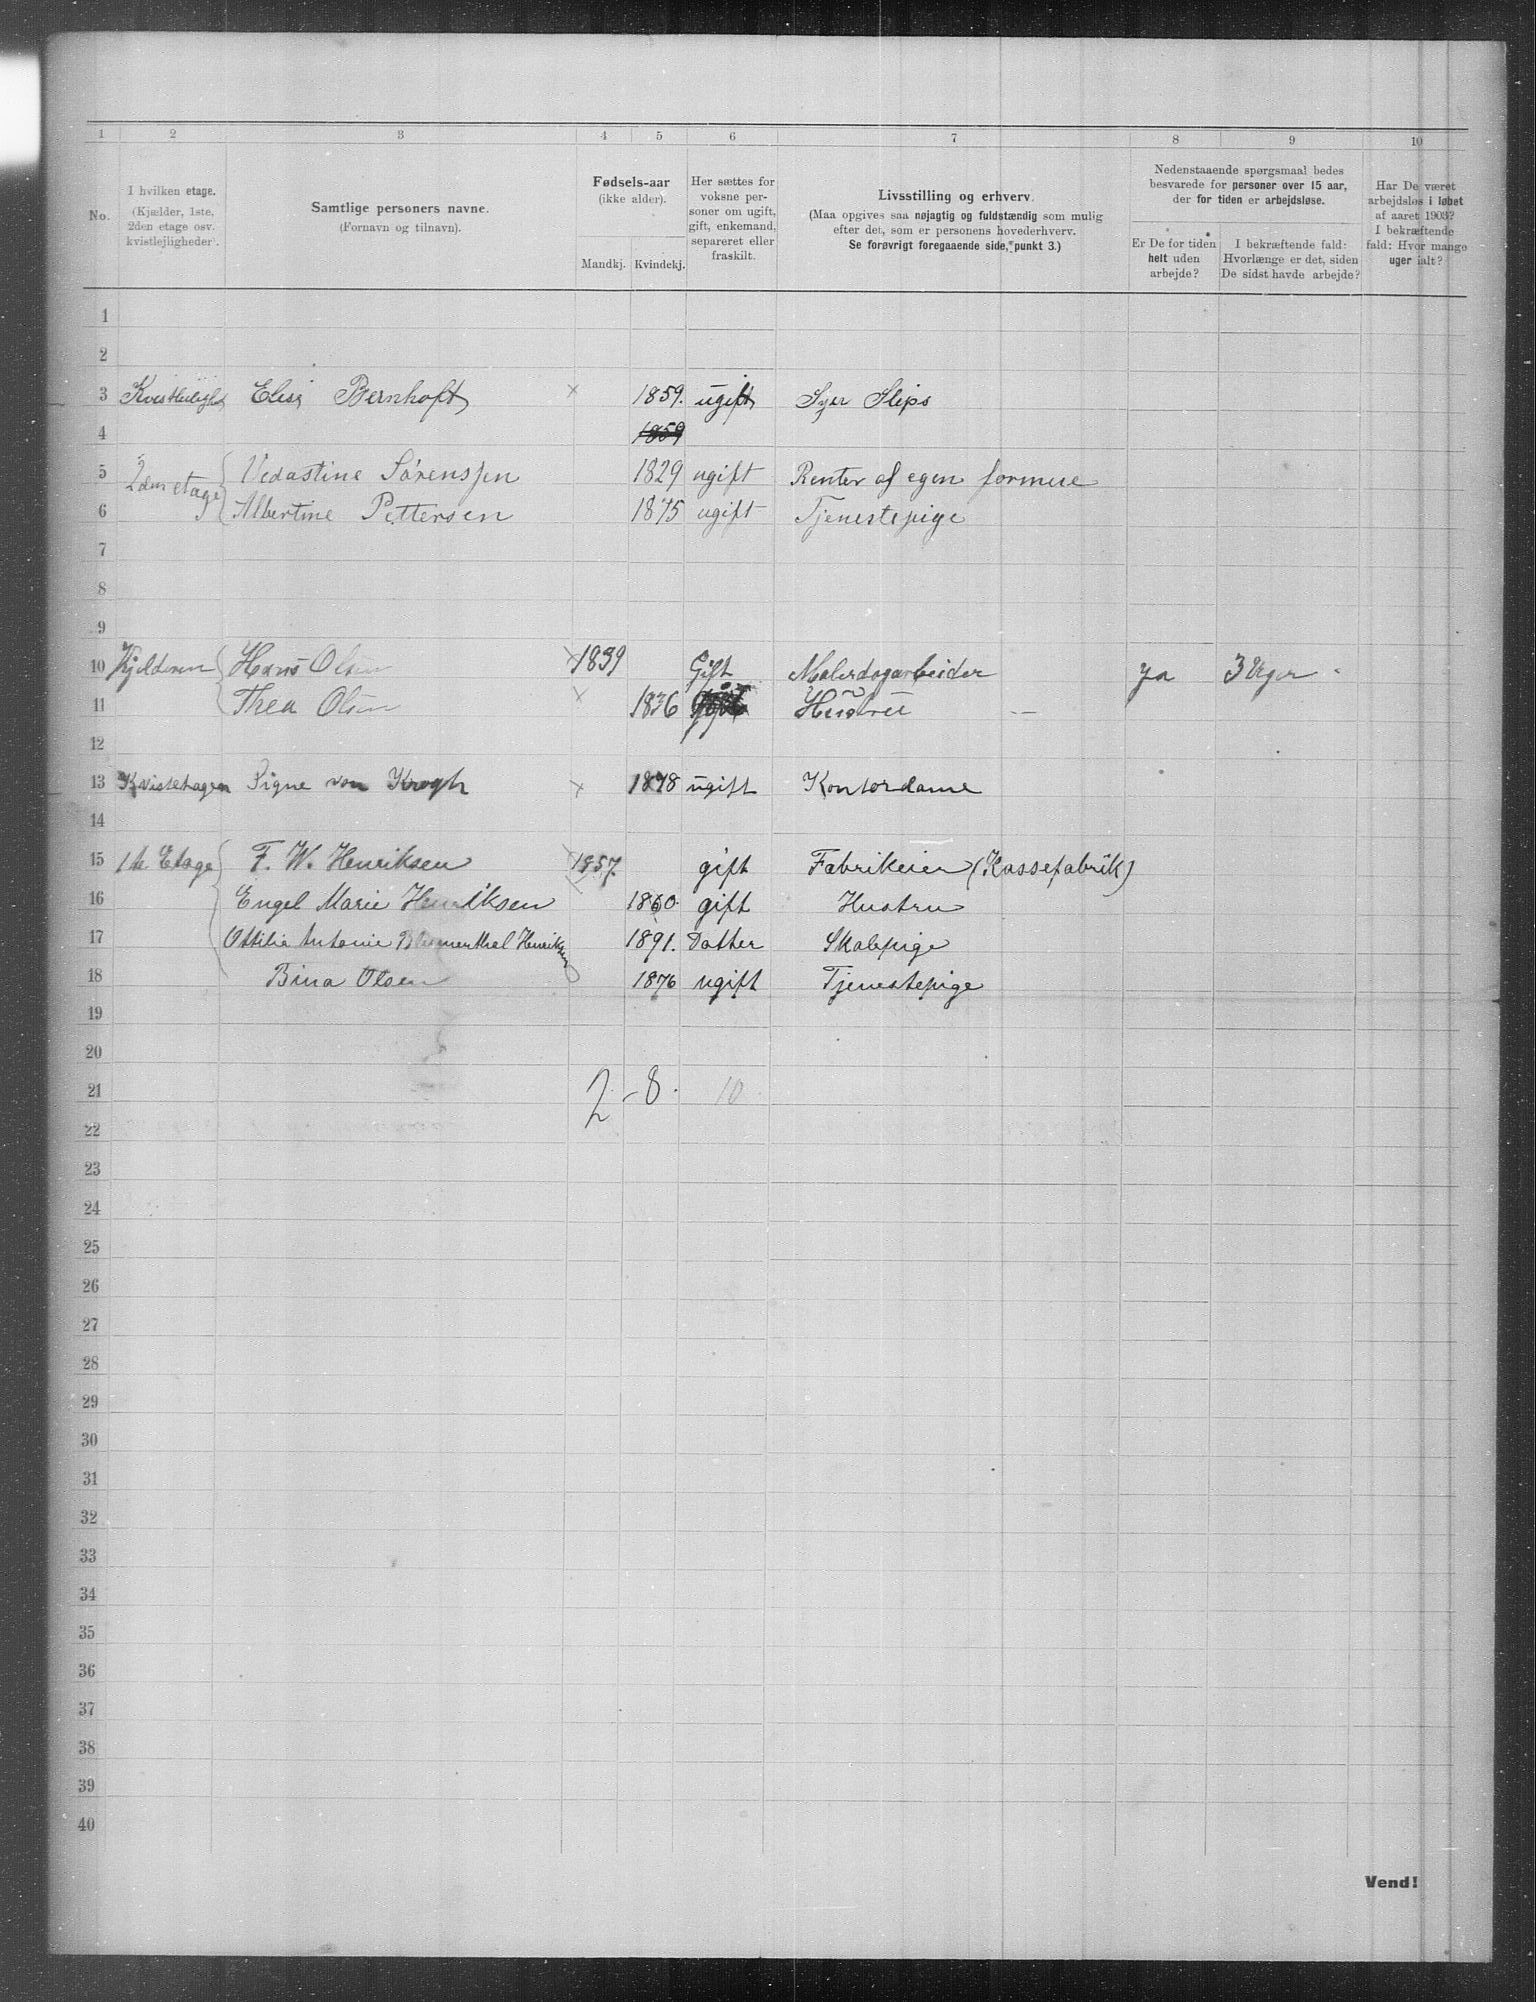 1 2 3 4 5 6 7 8 9 10
No.
I hvilken etage.
(Kjælder, 1ste,
2den etage osv.
kvistlejligheder).
Samtlige personers navne.
(Fornavn og tilnavn).
Fødsels-aar
(ikke alder).
Mandkj. Kvindekj.
Her sættes for
voksne per-
soner om ugift,
gift, enkemand,
separeret eller
fraskilt.
Livsstilling og erhverv.
(Maa opgives saa nøjagtig og fuldstændig som mulig
efter det, som er personens hovederhverv.
Se forøvrigt foregaaende side, punkt 3.)
Nedenstaaende spørgsmaal bedes
besvarede for personer over 15 aar,
der for tiden er arbejdsløse.
Er De for tiden
helt uden
arbejde?
I bekræftende fald:
Hvorlænge er det, siden
De sidst havde arbejde?
Har De været
arbejdsløs i løbet
af aaret 1903?
I bekræftende
fald: Hvor mange
uger ialt?
1
2
3 Elise Bernhoft × 1859. ugift Syer Slips
4 1859
5 2den etage Vedastine Sørenssen 1829 ugift Renter af egen formue
6 Albertine Pettersen 1875 ugift Tjenestepige
7
8
9
10 Kjelderen Hans Olsen × 1839 Gift Malerdagarbeider ja 3 Uger
11 Thea Olsen × 1836 Hüstrü —
12
13 Signe von Krogh × 1878 ugift Kontordame
14
15 1te Etage F. W. Henriksen × 1857. gift Fabrikeier (Kassefabrik)
16 Engel Marie Henriksen 1860. gift Hustru
17 Ottilia Antonie Blumenthal Henriksen 1891. Datter Skolepige
18 Bina Olsen 1876 ugift Tjenestepige
19
20
21 2 - 8. 10
22
23
24
25
26
27
28
29
30
31
32
33
34
35
36
37
38
39
40
Vend!